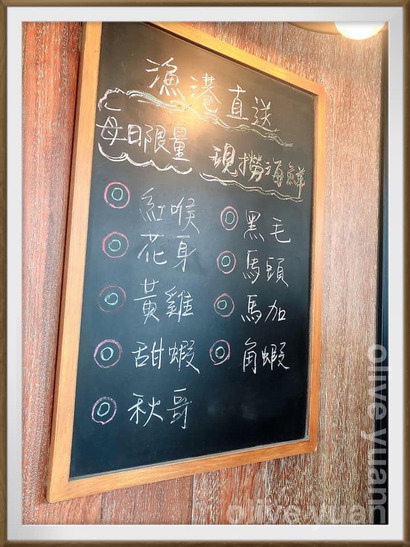 漁港直送
每日限量 現撈海鮮
紅喉
花身
黃雞
甜蝦
秋哥
黑毛
馬頭
馬加
角蝦
olive yuan
olive yuan